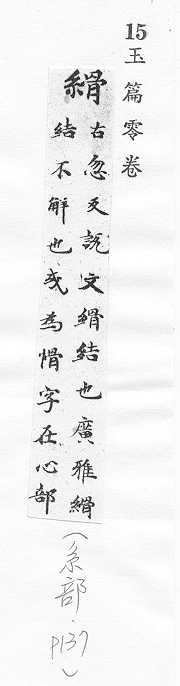 15玉篇零卷
縎
古忽反說文縎結也廣雅縎
結不解也或為愲字在心部
(糸部.P137)